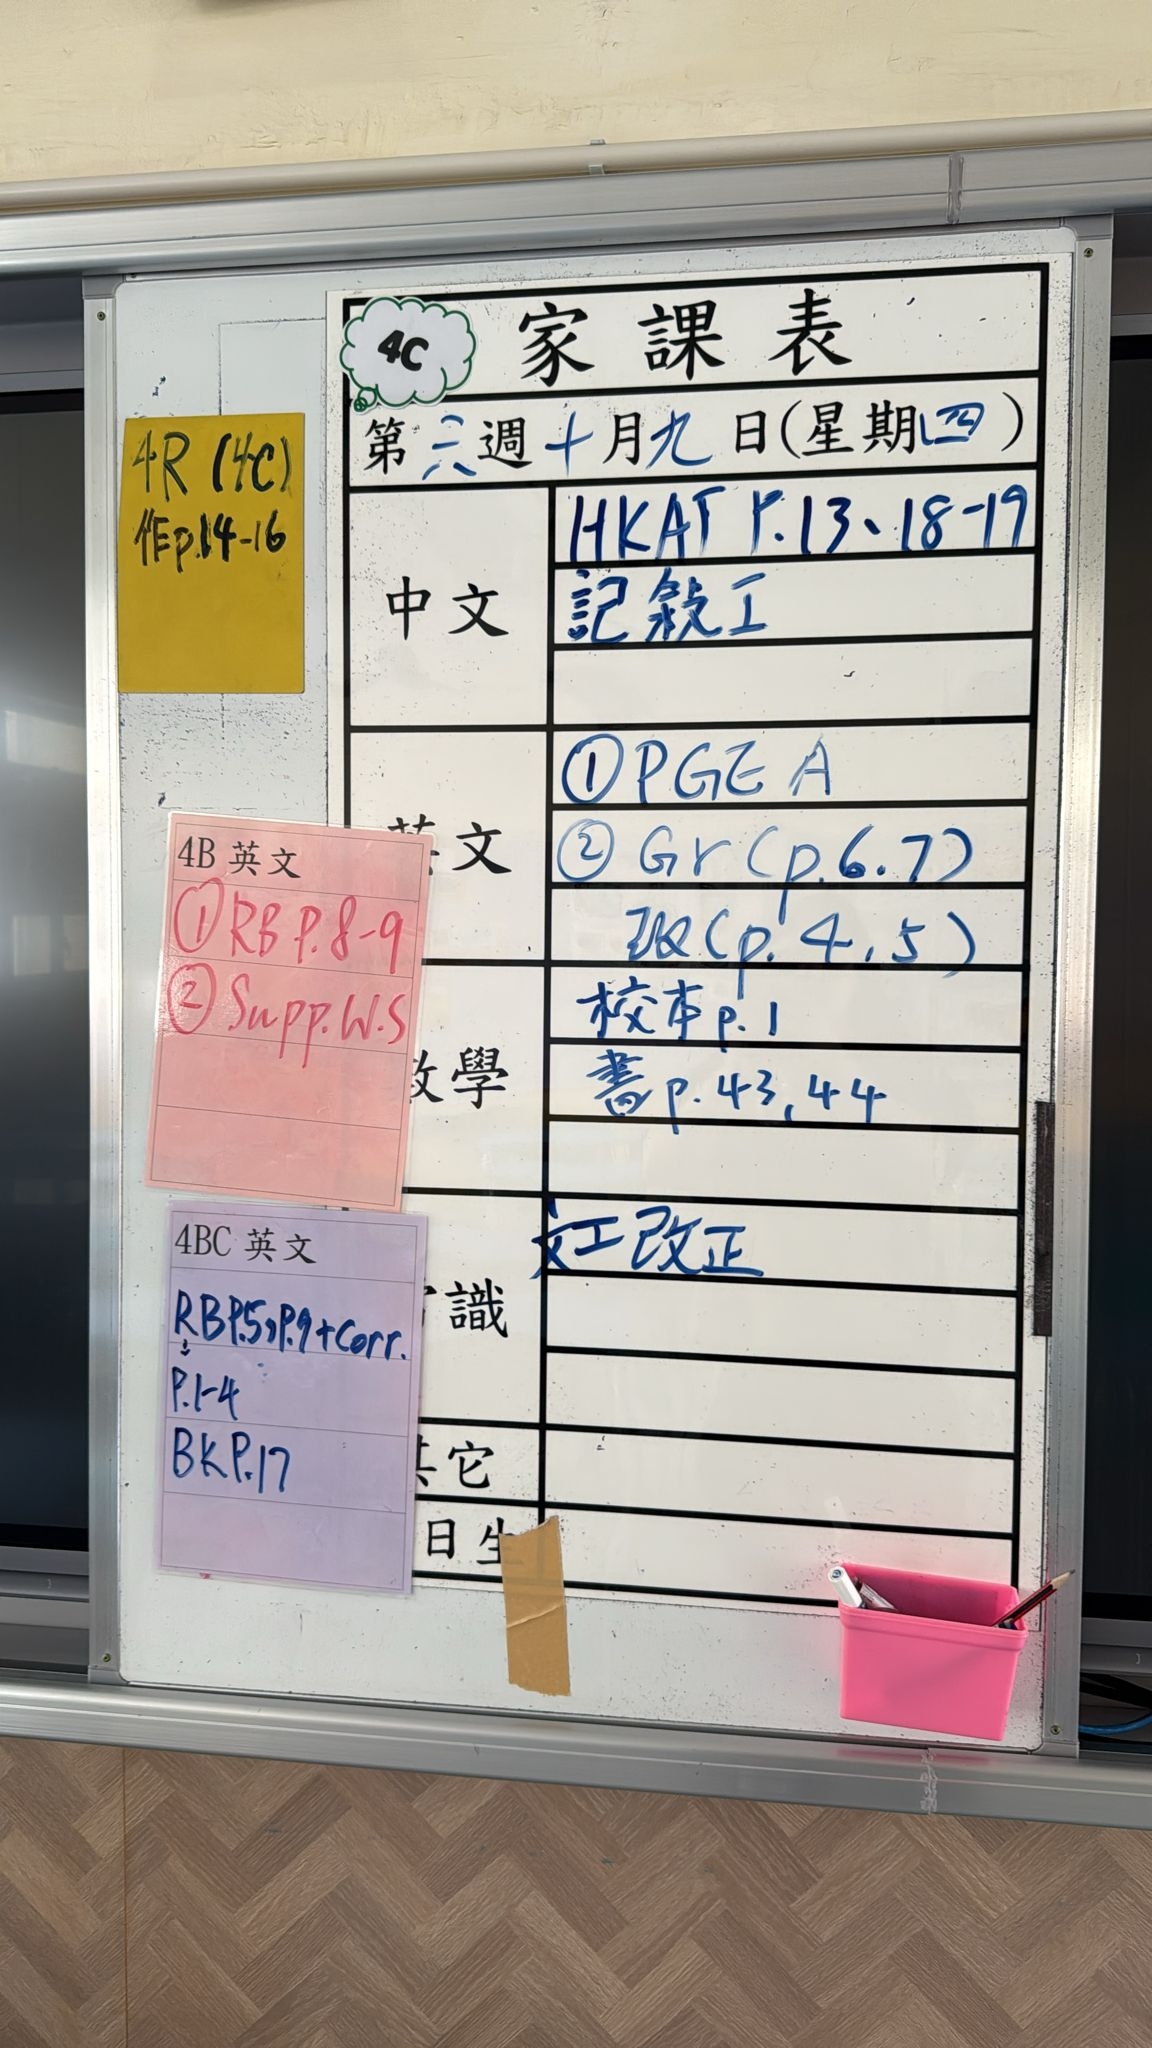 4C
家課表
第六週十月九日(星期四)
4R (4C)
作p.14-16
中文
HKAT P.13、18-19
記敘工
英文
①PGE A
②Gr(p.6.7)
(p.4,5)
4B 英文
①RB P.8-9
②Supp.W.S
數學
校本p.1
書p.43,44
4BC 英文
RB P.5,P.9+Corr.
P.1-4
BK P.17
常識
文工改正
其它
日生